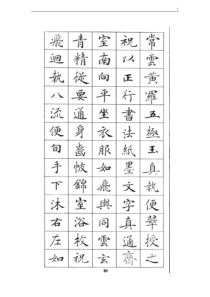 常雲黃羅五趣玉真執便翠授之
祝以正行書法紙墨文字通齋
室南向平坐衣服如與雲玄
青精從要通身齒帔錦室浴枚祝
飛迴執八流便旬手下沐右左如